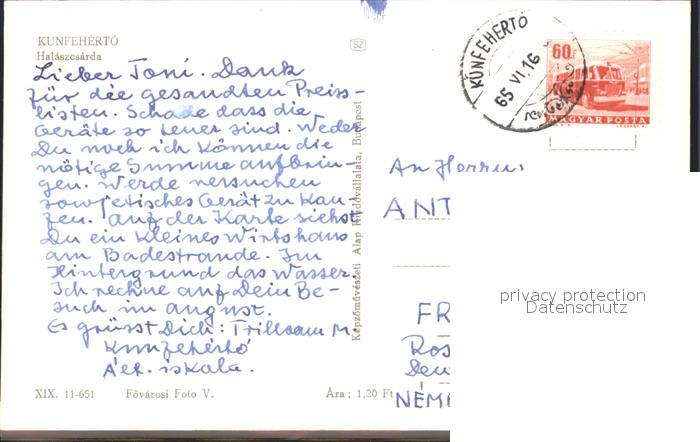 KUNFEHÉRTÓ
Halászcsárda
Lieber Toni. Dank
für die gesandten Preiss-
listen. Schade dass die
Geräte so teuer sind. Weder
Du noch ich können die
nötige Summe aufbrin-
gen. Werde versuchen
sowjetisches Gerät zu kau-
fen. Auf der Karte siehst
Du ein kleines Wirtshaus
am Badestrande. Im
Hintergrund das Wasser.
Ich rechne auf Dein Be-
such im august.
Es grüsst Dich: Trillsam M.
Kunfehértó
Ált. iskola.
XIX. 11-651 Fővárosi Foto V. Ára: 1,20 Ft
Képzőművészeti Alap Kiadóvállalata, Budapest
SZ
KUNFEHÉRTÓ
65 VI. 16
60f
MAGYAR POSTA
An Herrn:
ANT
FR
Ros
Deu
NÉM
privacy protection
Datenschutz